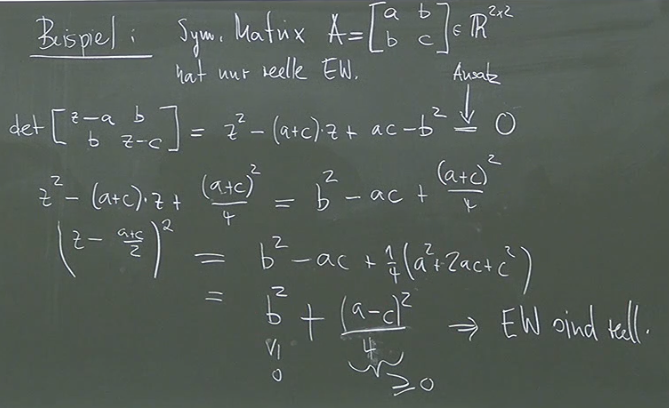 Beispiel: Sym. Matrix A = [a b; b c] ∈ ℝ^{2×2}
hat nur reelle EW.
Ansatz
det [z−a b; b z−c] = z² − (a+c)·z + ac − b² = 0
z² − (a+c)·z + (a+c)²/4 = b² − ac + (a+c)²/4
(z − (a+c)/2)² = b² − ac + 1/4(a² + 2ac + c²)
= b² + (a−c)²/4 ⇒ EW sind reell.
≥ 0 ≥ 0